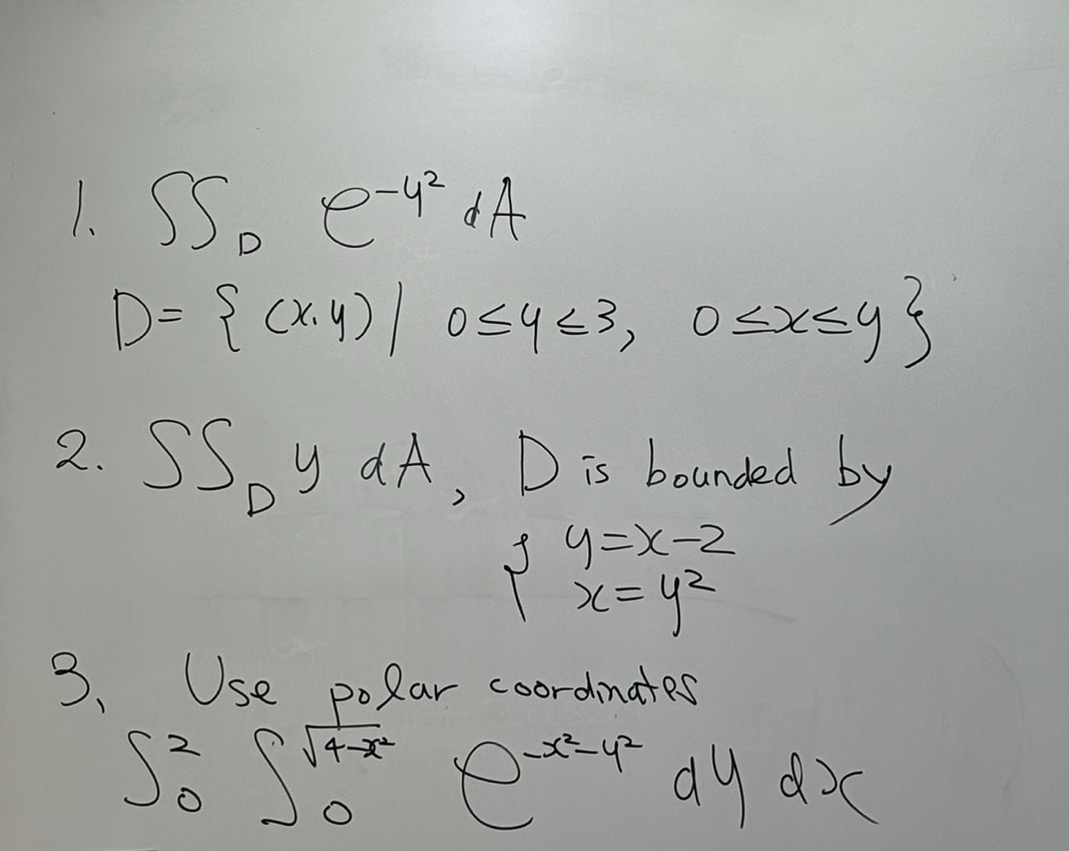 1. ∫∫_D e^{-y^2} dA
D = { (x,y) | 0 ≤ y ≤ 3, 0 ≤ x ≤ y }
2. ∫∫_D y dA, D is bounded by
{ y = x - 2
x = y^2
3. Use polar coordinates
∫_0^2 ∫_0^{√(4-x^2)} e^{-x^2-y^2} dy dx